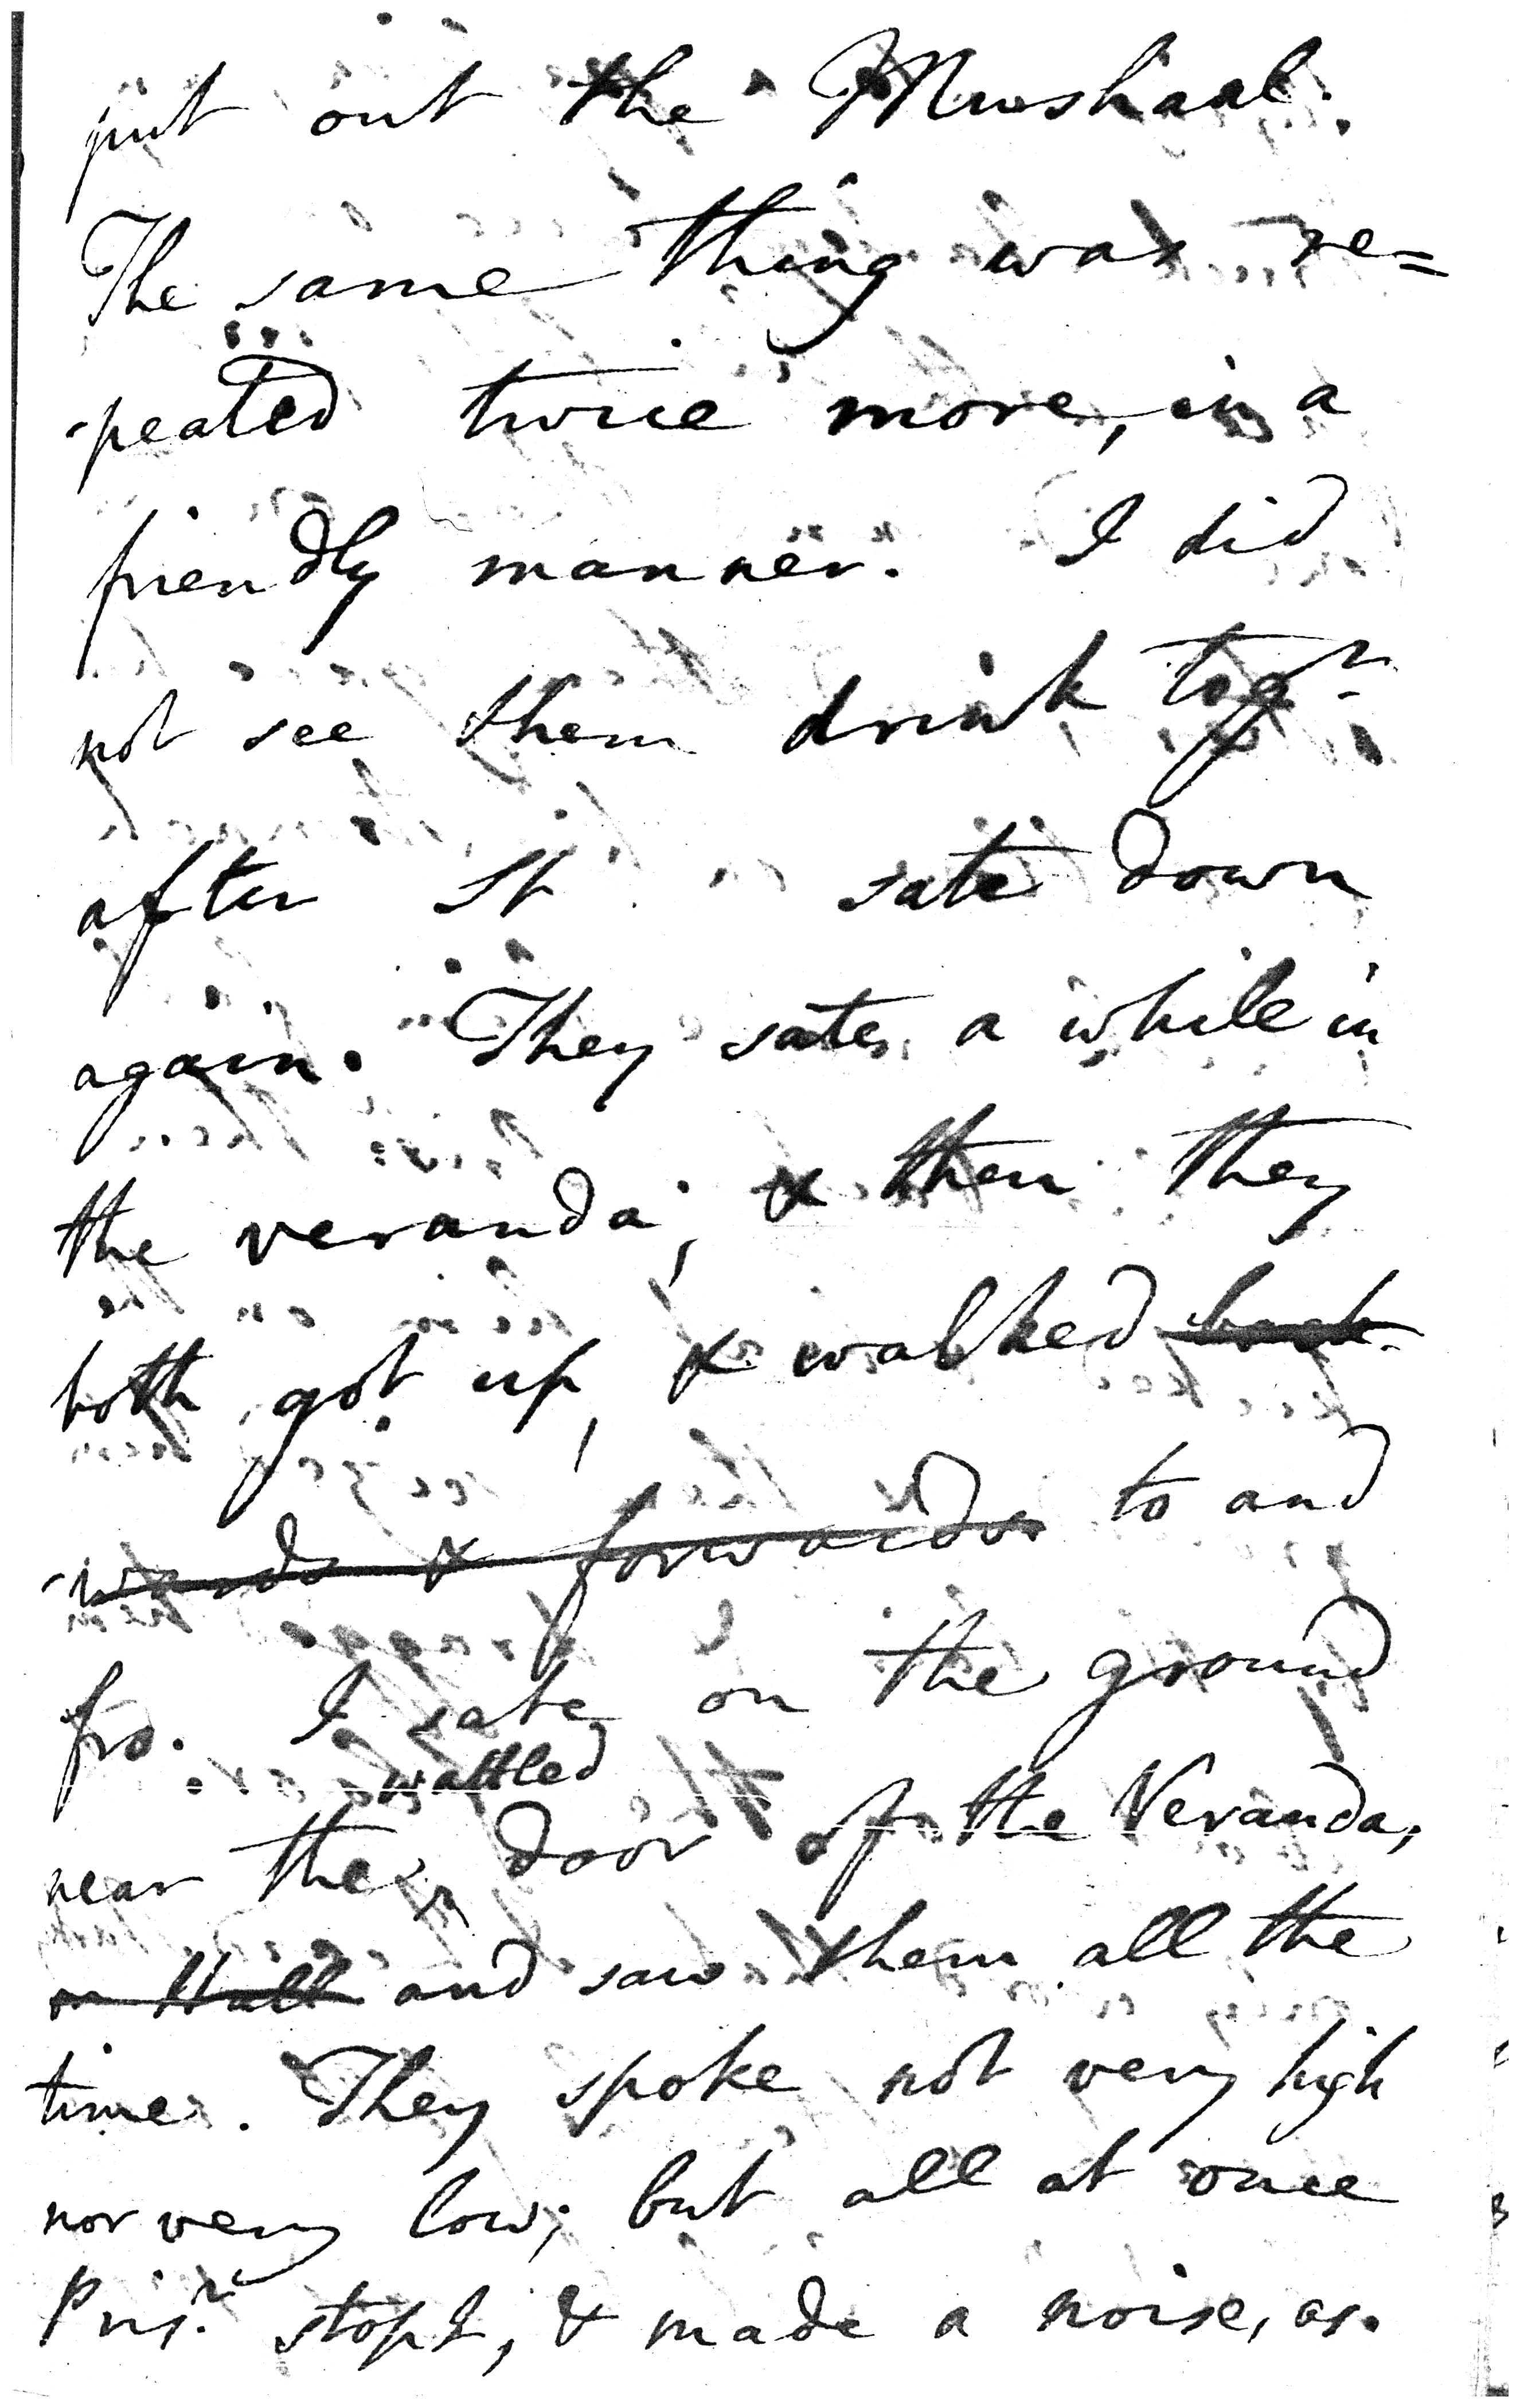 put out the Mushaal.
The same thing was re=
-peated twice more, in a
friendly manner. I did
not see them drink togr
after St. sate down
again. They sate a while in
the veranda; & then they
both got up, & walked back-
-wards & forwards to and
fro. I sate on the ground
wattled
near the door of the Veranda,
or Hall and saw them all the
time. They spoke not very high
nor very low; but all at once
Prisr. stopt, & made a noise, as